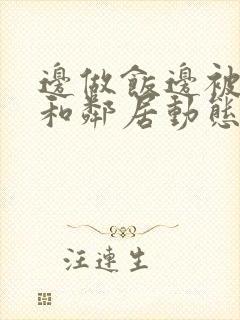 邊做飯邊被
和鄰居動態
汪連生